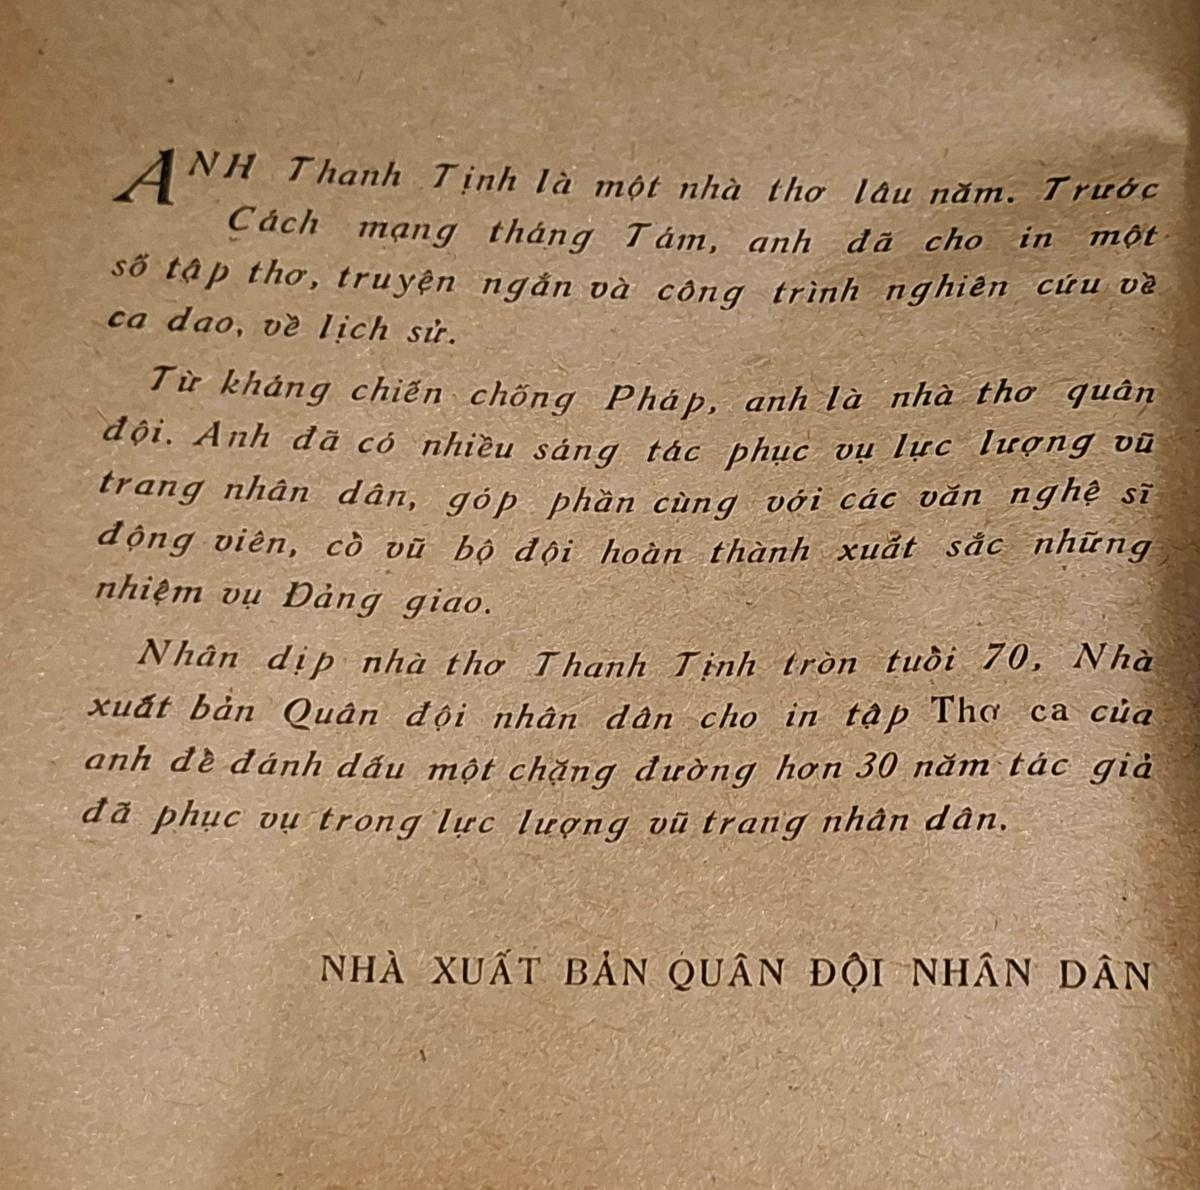 ANH Thanh Tịnh là một nhà thơ lâu năm. Trước
Cách mạng tháng Tám, anh đã cho in một
số tập thơ, truyện ngắn và công trình nghiên cứu về
ca dao, về lịch sử.
Từ kháng chiến chống Pháp, anh là nhà thơ quân
đội. Anh đã có nhiều sáng tác phục vụ lực lượng vũ
trang nhân dân, góp phần cùng với các văn nghệ sĩ
động viên, cổ vũ bộ đội hoàn thành xuất sắc những
nhiệm vụ Đảng giao.
Nhân dịp nhà thơ Thanh Tịnh tròn tuổi 70, Nhà
xuất bản Quân đội nhân dân cho in tập Thơ ca của
anh để đánh dấu một chặng đường hơn 30 năm tác giả
đã phục vụ trong lực lượng vũ trang nhân dân.
NHÀ XUẤT BẢN QUÂN ĐỘI NHÂN DÂN